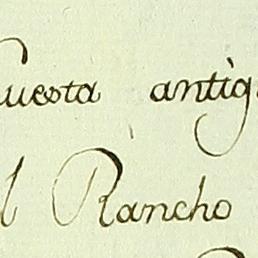 Cuesta antig
l Rancho